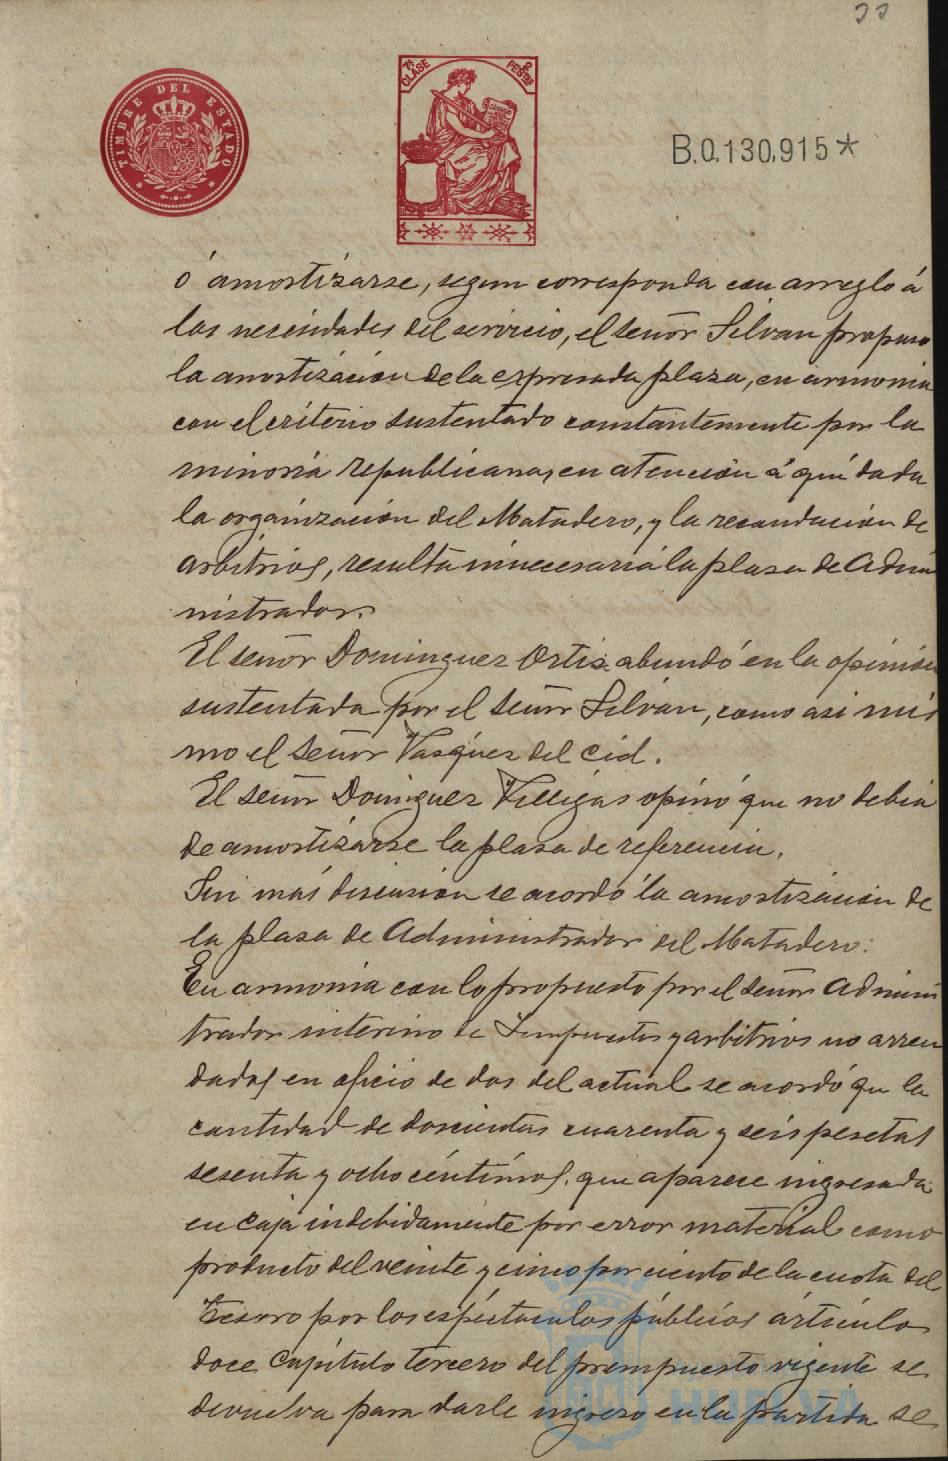 TIMBRE DEL ESTADO
7ª CLASE
2 PESTAS
B.0.130.915*
ó amortizarse, segun corresponda con arreglo á
las necesidades del servicio, el señor Silvan propuso
la amortización de la expresada plaza, en armonia
con el criterio sustentado constantemente por la
minoria republicana, en atención á que dada
la organización del Matadero, y la recaudación de
arbitrios, resulta innecesaria la plaza de Admi
nistrador.
El señor Dominguez Ortiz abundó en la opinión
sustentada por el señor Silván, como asi mis
mo el señor Vazquez del Cid.
El señor Dominguez Villegas opinó que no debia
de amortizarse la plaza de referencia.
Sin más discusion se acordó la amortización de
la plaza de Administrador del Matadero.
En armonia con lo propuesto por el señor Adminis
trador interino de Impuestos y arbitrios no arren
dados en oficio de dos del actual se acordó que la
cantidad de doscientas cuarenta y seis pesetas
sesenta y ocho céntimos, que aparece ingresada
en caja indebidamente por error material como
producto del veinte y cinco por ciento de la cuota del
Tesoro por los espectaculos públicos artículo
doce capítulo tercero del presupuesto vigente se
devuelva para darle ingreso en la partida se
HUELVA